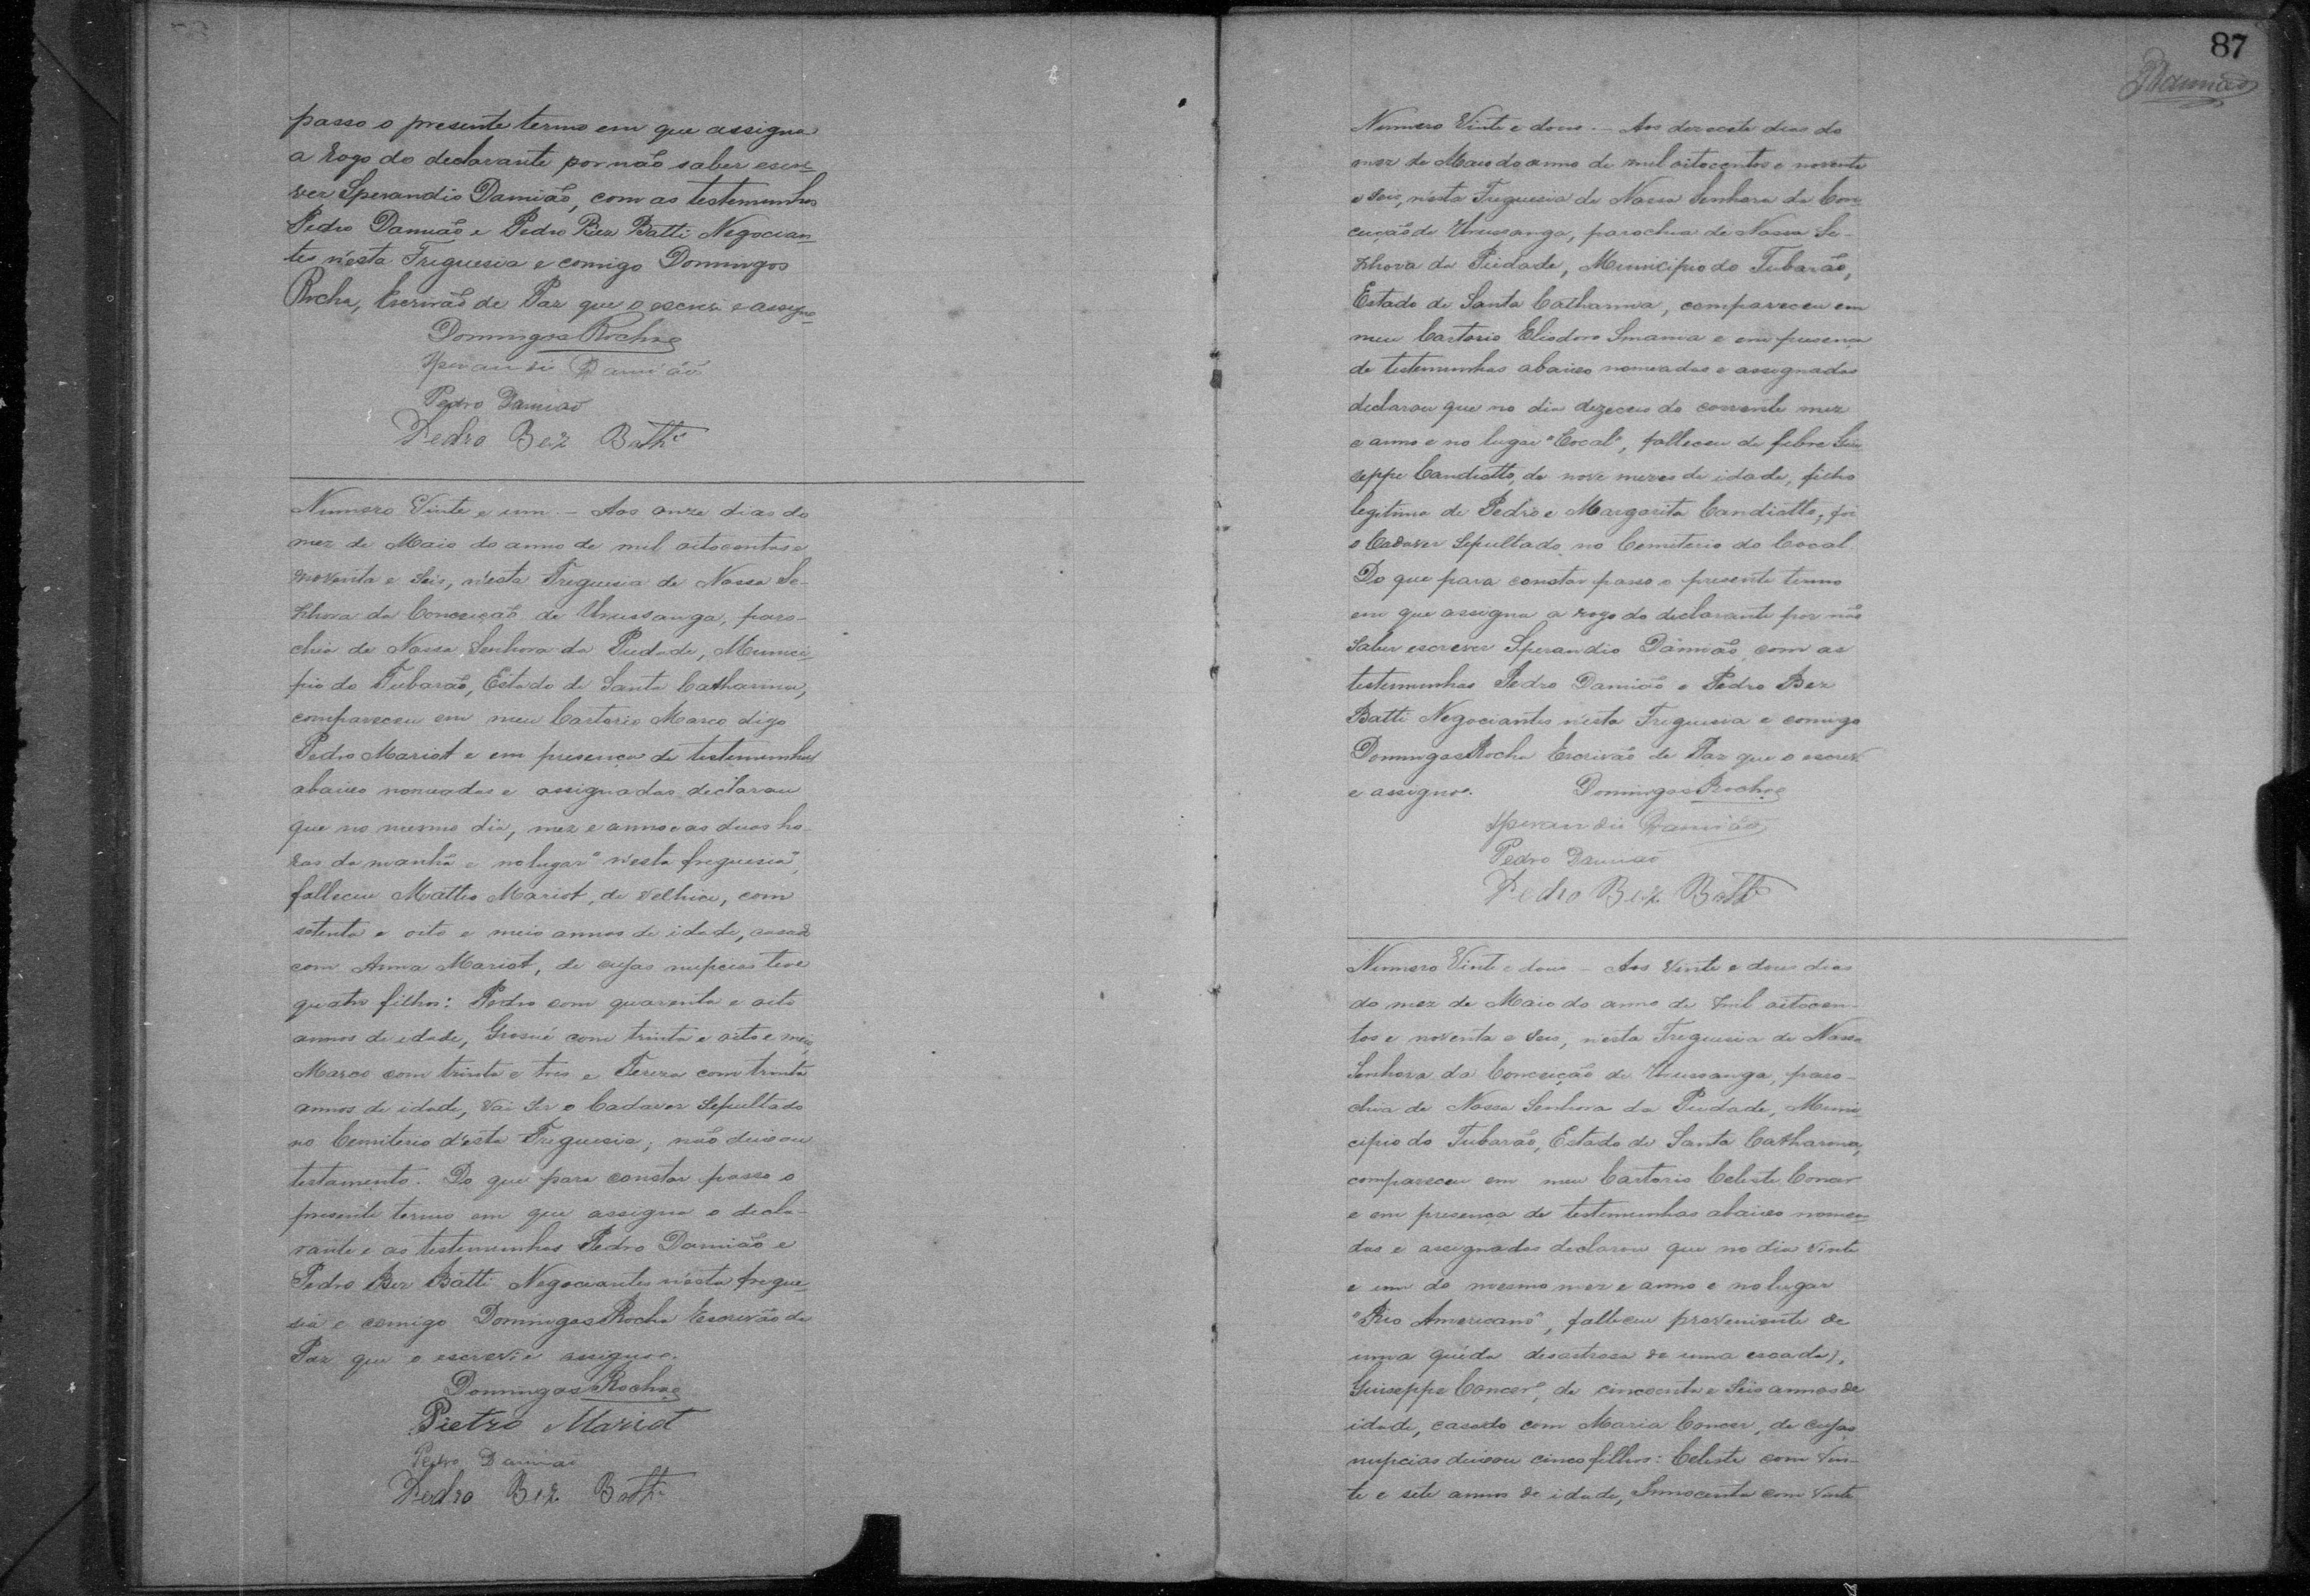 passo o presente termo em que assigna
a rogo do declarante por não saber escre-
ver Sperandio Damião, com as testemunhas
Pedro Damião e Pedro Bez Batti Negocian-
tes n'esta Freguesia e comigo Domingos
Rocha, Escrivão de Paz que o escrevi e assigno
Domingos Rocha
Sperandio Damião
Pedro Damião
Pedro Bez Batti
Numero Vinte e um. — Aos onze dias do
mez de Maio do anno de mil oitocentos e
noventa e Seis, n'esta Freguesia de Nossa Se-
nhora da Conceição de Urussanga, paro-
chia de Nossa Senhora da Piedade, Munici-
pio do Tubarão, Estado de Santa Catharina,
compareceu em meu Cartorio Marco digo
Pedro Mariot e em presença de testemunhas
abaixo nomeadas e assignadas declarou
que no mesmo dia, mez e anno e as duas ho-
ras da manhã e no lugar "n'esta freguesia",
falleceu Matteo Mariot, de velhice, com
setenta e oito e meio annos de idade, casado
com Anna Mariot, de cujas nupcias teve
quatro filhos: Pedro com quarenta e oito
annos de idade, Giosué com trinta e oito e meio,
Marco com trinta e tres e Tereza com trinta
annos de idade, Vai Ser o Cadaver Sepultado
no Cemiterio d'esta Freguesia; não deixou
testamento. Do que para constar passo o
presente termo em que assigna o decla-
rante e as testemunhas Pedro Damião e
Pedro Bez Batti Negociantes n'esta fregue-
sia e comigo Domingos Rocha Escrivão de
Paz que o escrevi e assigno.
Domingos Rocha
Pietro Mariot
Pedro Damião
Pedro Bez Batti
87
Damião
Numero Vinte e dous. — Aos dezecete dias do
mez de Maio do anno de mil oitocentos e noventa
e Seis, n'esta Freguesia de Nossa Senhora da Con-
ceição de Urussanga, parochia de Nossa Se-
nhora da Piedade, Municipio do Tubarão,
Estado de Santa Catharina, compareceu em
meu Cartorio Eliodoro Smania e em presença
de testemunhas abaixo nomeadas e assignadas
declarou que no dia dezeceis do corrente mez
e anno e no lugar "Cocal", falleceu de febre Giu-
seppe Candiotto, de nove mezes de idade, filho
legitimo de Pedro e Margarita Candiotto, foi
o Cadaver Sepultado no Cemiterio do Cocal.
Do que para constar passo o presente termo
em que assigna a rogo do declarante por não
Saber escrever Sperandio Damião com as
testemunhas Pedro Damião e Pedro Bez
Batti Negociantes n'esta Freguesia e comigo
Domingos Rocha Escrivão de Paz que o escrevi
e assigno. Domingos Rocha
Sperandio Damião
Pedro Damião
Pedro Bez Batti
Numero Vinte e dous — Aos Vinte e dous dias
do mez de Maio do anno de mil oitocen-
tos e noventa e Seis, n'esta Freguesia de Nossa
Senhora da Conceição de Urussanga, paro-
chia de Nossa Senhora da Piedade, Muni-
cipio do Tubarão, Estado de Santa Catharina,
compareceu em meu Cartorio Celeste Concer
e em presença de testemunhas abaixo nomea-
das e assignadas declarou que no dia vinte
e um do mesmo mez e anno e no lugar
"Rio Americano", falleceu proveniente de
uma quéda desastrosa de uma escada),
Giuseppe Concer, de cincoenta e Seis annos de
idade, casado com Maria Concer, de cujas
nupcias deixou cinco filhos: Celeste com Vin-
te e sete annos de idade, Innocenta com Vinte